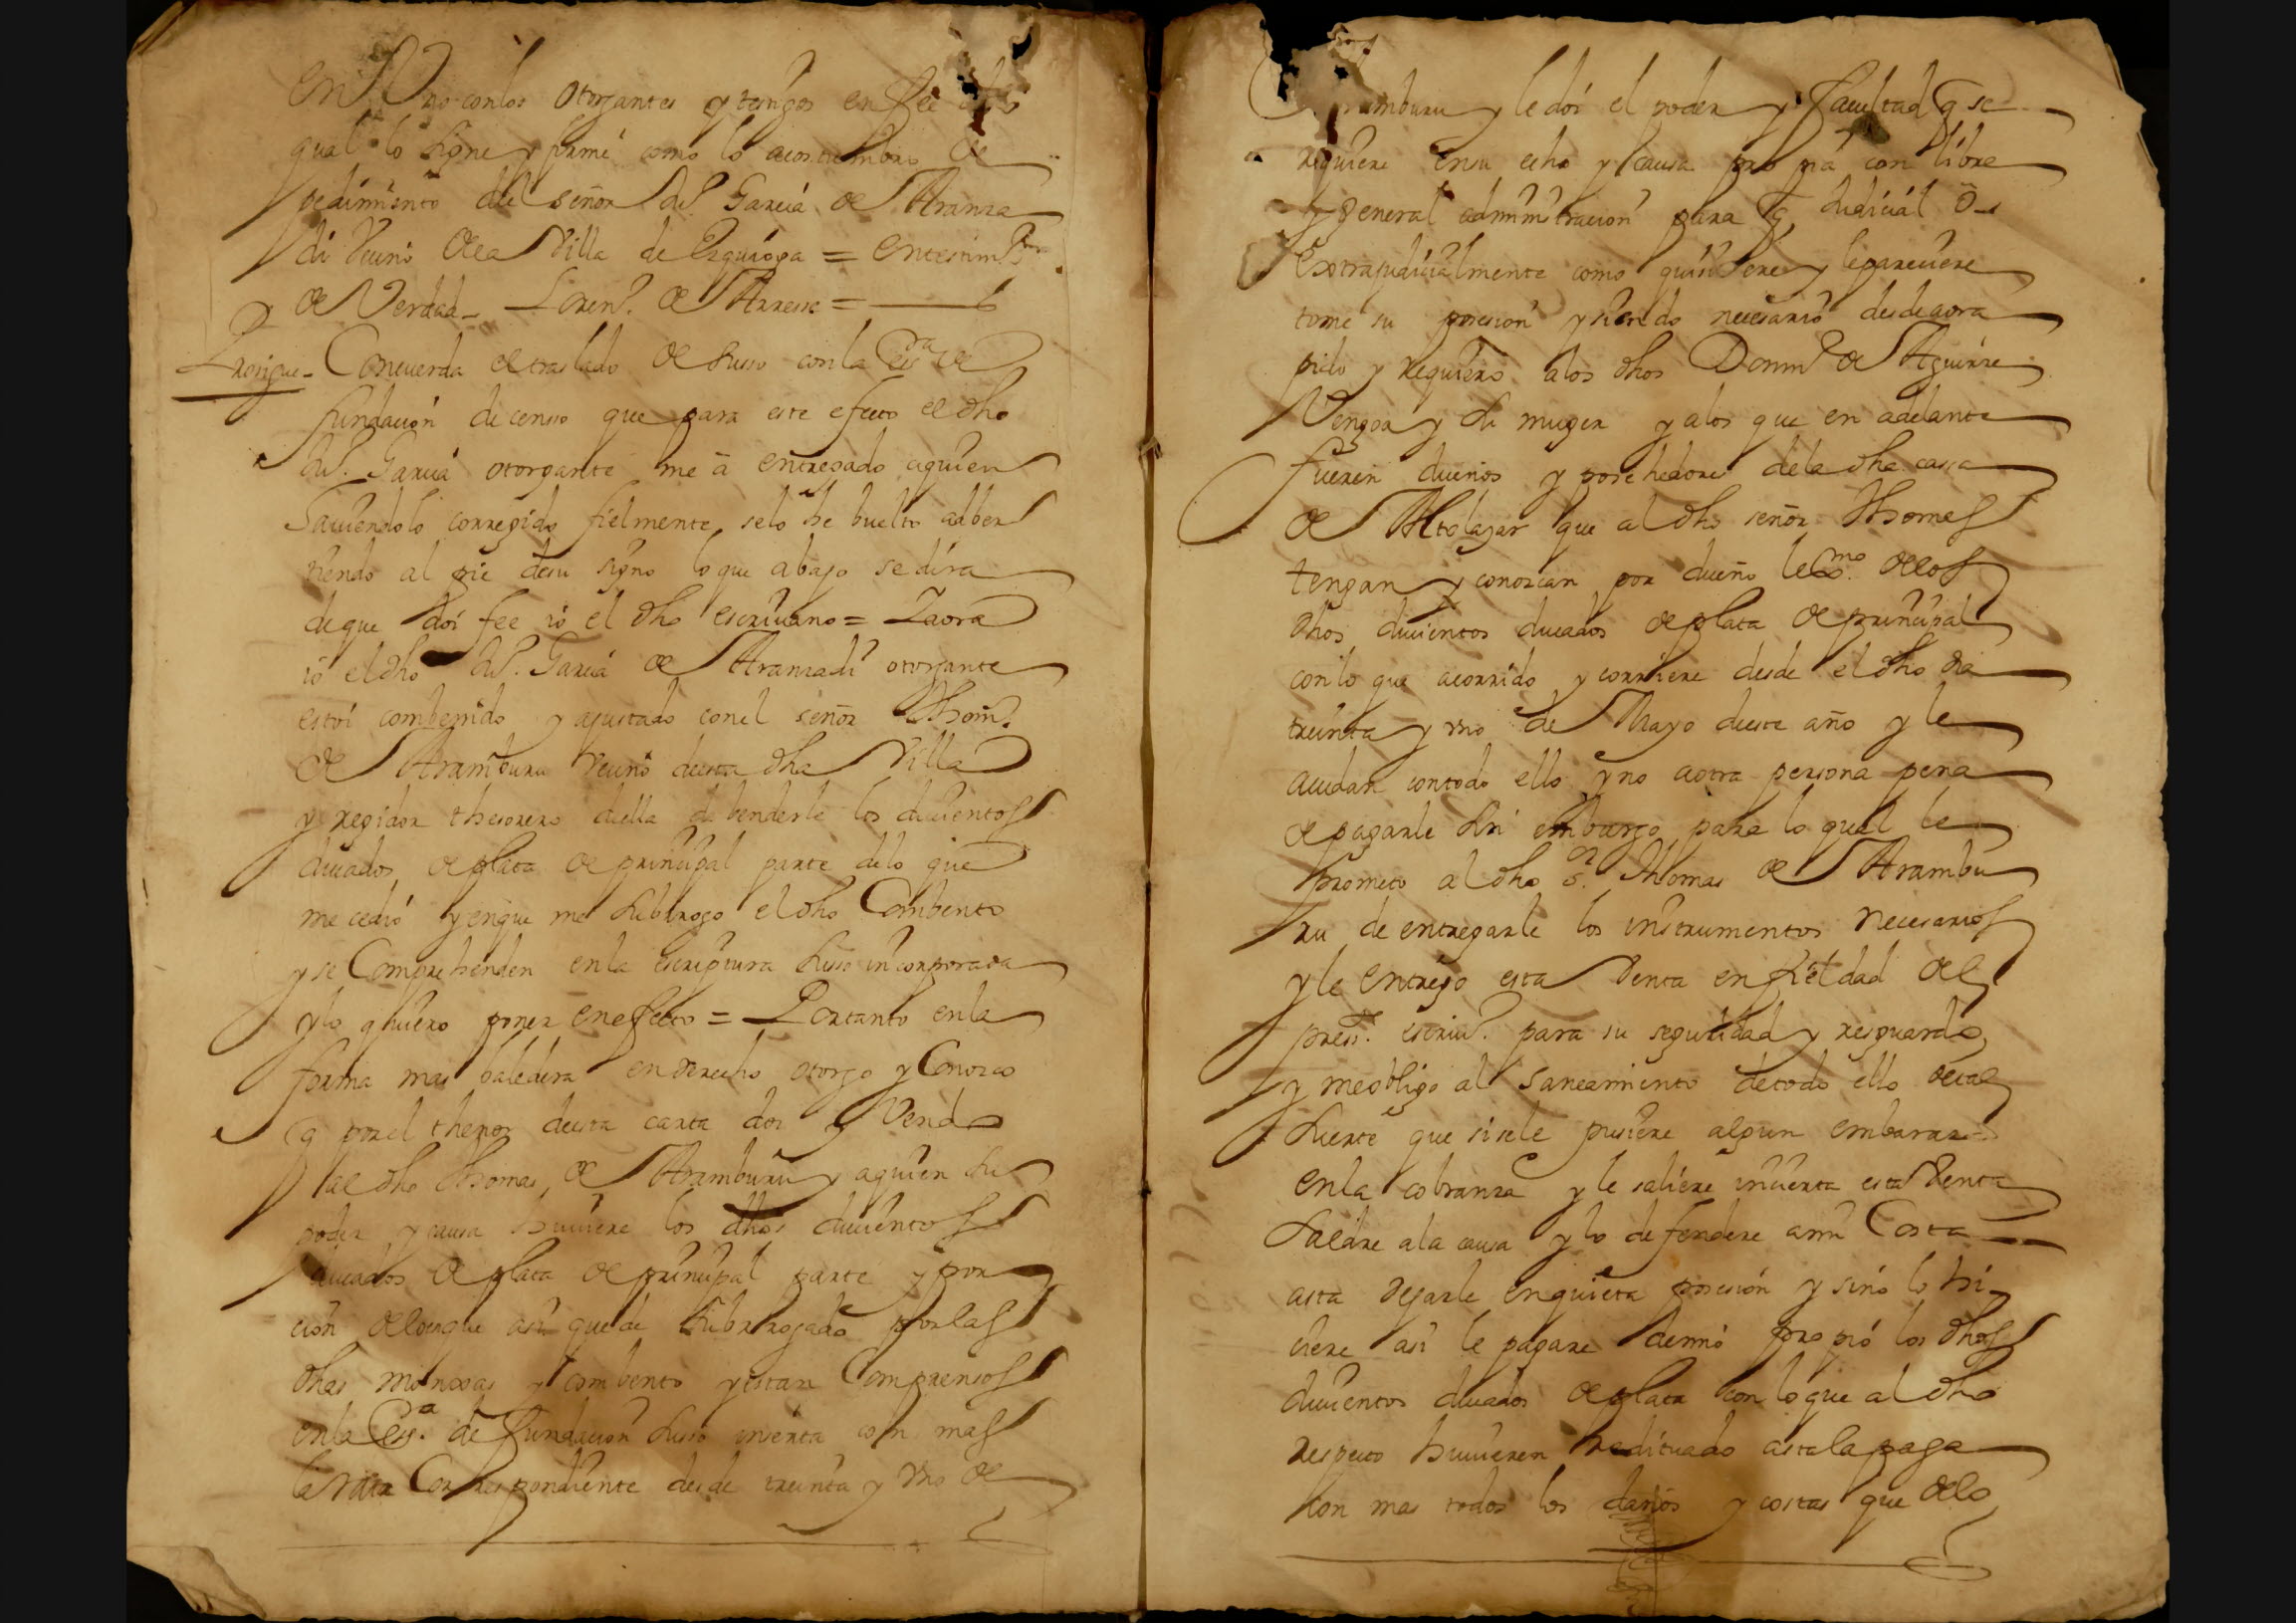 en Vno con los otorgantes y testigos en fee
qual lo signe y firmé como lo acostumbro de
pedimiento del señor Dn. Garcia de Aranza
di Vecino de la Villa de Ezquioga = en testimo.
de Verdad - Loren.º de Arrese =
Prosigue - Concuerda el traslado de susso con la Esra de
fundación de censso que para este efecto el dho
Dn. Garcia otorgante me ā entregado a quien
haviendolo corregido fielmente se lo he buelto adber
tiendo al pie de su signo lo que abajo se dira
de que doi fee io el dho escrivano = I aora
io el dho Dn. Garcia de Aranzadi otorgante
estoi combenido y ajustado con el señor Thom.s
de Aramburu Vecino desta dha Villa
y regidor thesorero della de benderle los ducientos
ducados de plata de principal parte de lo que
me cedió y en que me subrrogo el dho Combento
y se Comprehenden en la escriptura susso incorporada
y lo quiero poner en efecto = Por tanto en la
forma mas baledera en derecho otorgo y Conozco
q por el thenor desta carta doi y Vendo
al dho Thomas de Aramburu y a quien su
poder y causa huviere los dhos ducientos
ducados de plata de principal parte y por
ción de los en que asi quede subrrogado por las
dhas monxas y combento y estan Comprensos
en la Esra. de fundacion susso inserta con mas
la rata Correspondiente desde treinta y Vno de
Aramburu y le doi el poder y facultad q se
requiere en su echo y causa propia con libre
y general administracion para q Judicial ō
Extrajudicialmente como quisiere y le pareciere
tome su posesion y siendo necesario desde aora
pido y requiero a los dhos Domin.º de Aguirre
Vengoa y su muger y a los que en adelante
fueren dueños y posehedores de la dha cassa
de Altolazar que al dho señor Thomes
tengan y conozcan por dueño lexmo. de los
dhos ducientos ducados de plata de principal
con lo que a corrido y corriere desde el dho dia
treinta y vno de Mayo deste año y le
acudan con todo ello y no a otra persona pena
de pagarle sin embargo para lo qual le
prometo al dho sr. Thomas de Arambu
ru de entregarle los instrumentos necesarios
y le entrego esta Venta en fieldad del
press.te escriv.º para su seguridad y resguardo
y me obligo al saneamiento de todo ello de tal
suerte que si se le pusiere algun embarazo
en la cobranza y le saliere incierta esta Venta
saldre a la causa y lo defendere a mi Costa
asta dejarle en quieta posesión y si no lo hi
ciere asi le pagare de mio propio los dhos
ducientos ducados de plata con lo que al dho
respecto huvieren redituado asta la paga
con mas todos los daños y costas que de lo